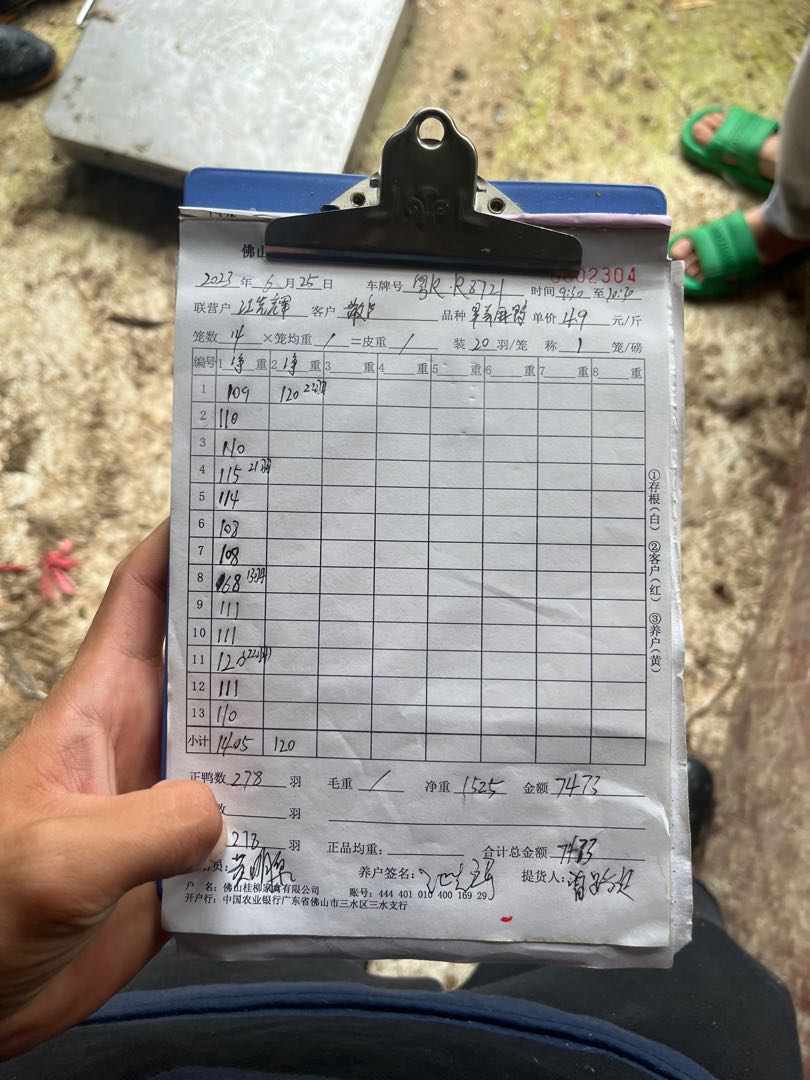 佛山
0002304
2023 年 6 月 25 日 车牌号 粤R·R8721 时间 9:30 至 10:30
联营户 客户 散户 品种 单价 4.9 元/斤
笼数 14 ×笼均重 / =皮重 / 装 20 羽/笼 称 1 笼/磅
编号 1 净 重 2 净 重 3 重 4 重 5 重 6 重 7 重 8 重
1 109 120 22羽
2 110
3 110
4 115 21羽
5 114
6 103
7 108
8 68 13羽
9 111
10 111
11 22羽
12 111
13 110
小计 1405 120
正鸭数 278 羽 毛重 / 净重 1525 金额 7473
数 羽
278 羽 正品均重: 合计总金额 7473
员: 养户签名: 提货人:
户 名: 佛山桂柳家禽有限公司 账号: 444 401 010 400 169 29
开户行: 中国农业银行广东省佛山市三水区三水支行
①存根(白) ②客户(红) ③养户(黄)